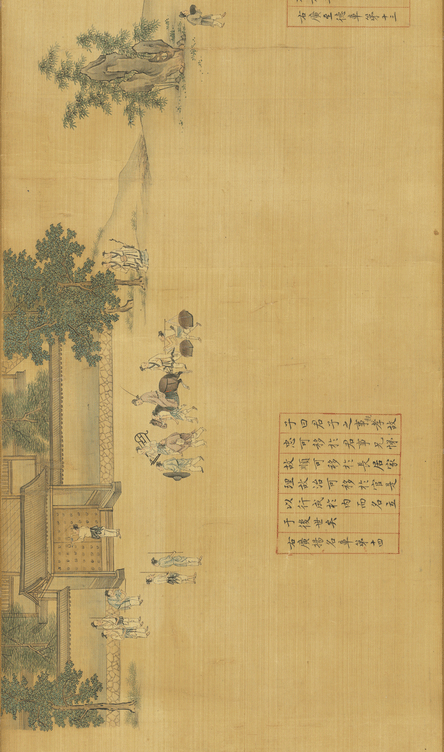 右廣至德章第十三
子曰君子之事親孝故
忠可移於君事兄悌
故順可移於長居家
理故治可移於官是
以行成於内而名立
于後世矣
右廣揚名章第十四